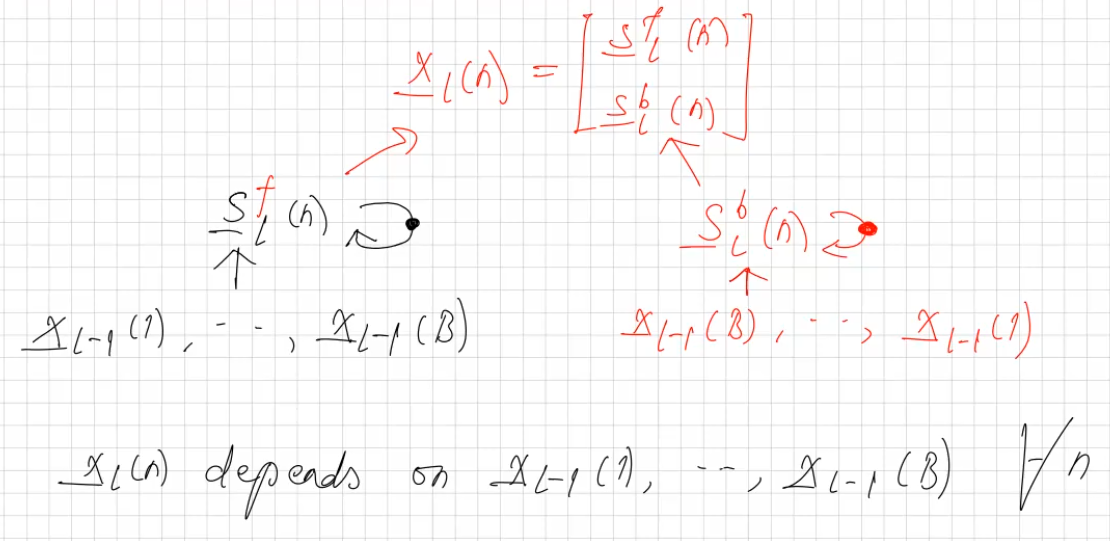 x_l(n) = [ s_l^f(n)
s_l^b(n) ]
s_l^f(n)
s_l^b(n)
x_{l-1}(1), ..., x_{l-1}(B)
x_{l-1}(B), ..., x_{l-1}(1)
x_l(n) depends on x_{l-1}(1), ..., x_{l-1}(B) ∀n